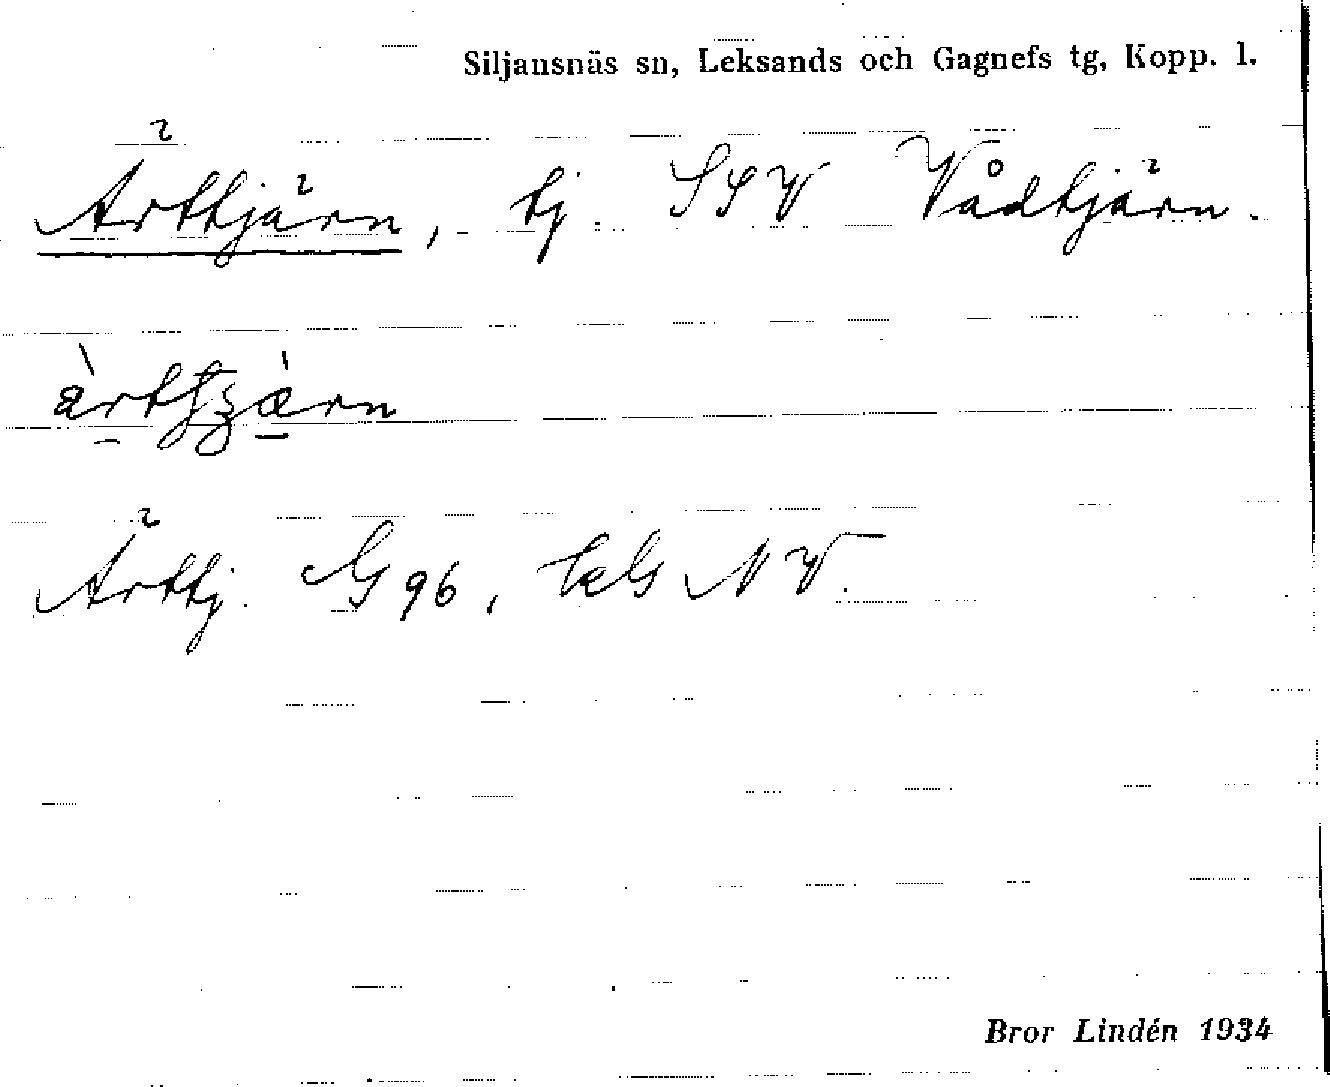 Siljansnäs sn, Leksands och Gagnefs tg, Kopp. l.
Ärttjärn, tj. SSV Vådtjärn.
Ärttj. G 96, NV.
Bror Lindén 1934